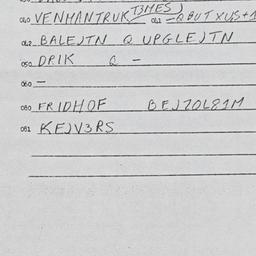 040 VENMANTRUK T3MES) 041 -Q BUT XUS+1
042 BALEJTN Q UPGLEJTN
050 DRIK Q -
060 -
080 FRIDHOF BEJZOL81M
081 KEJV3RS